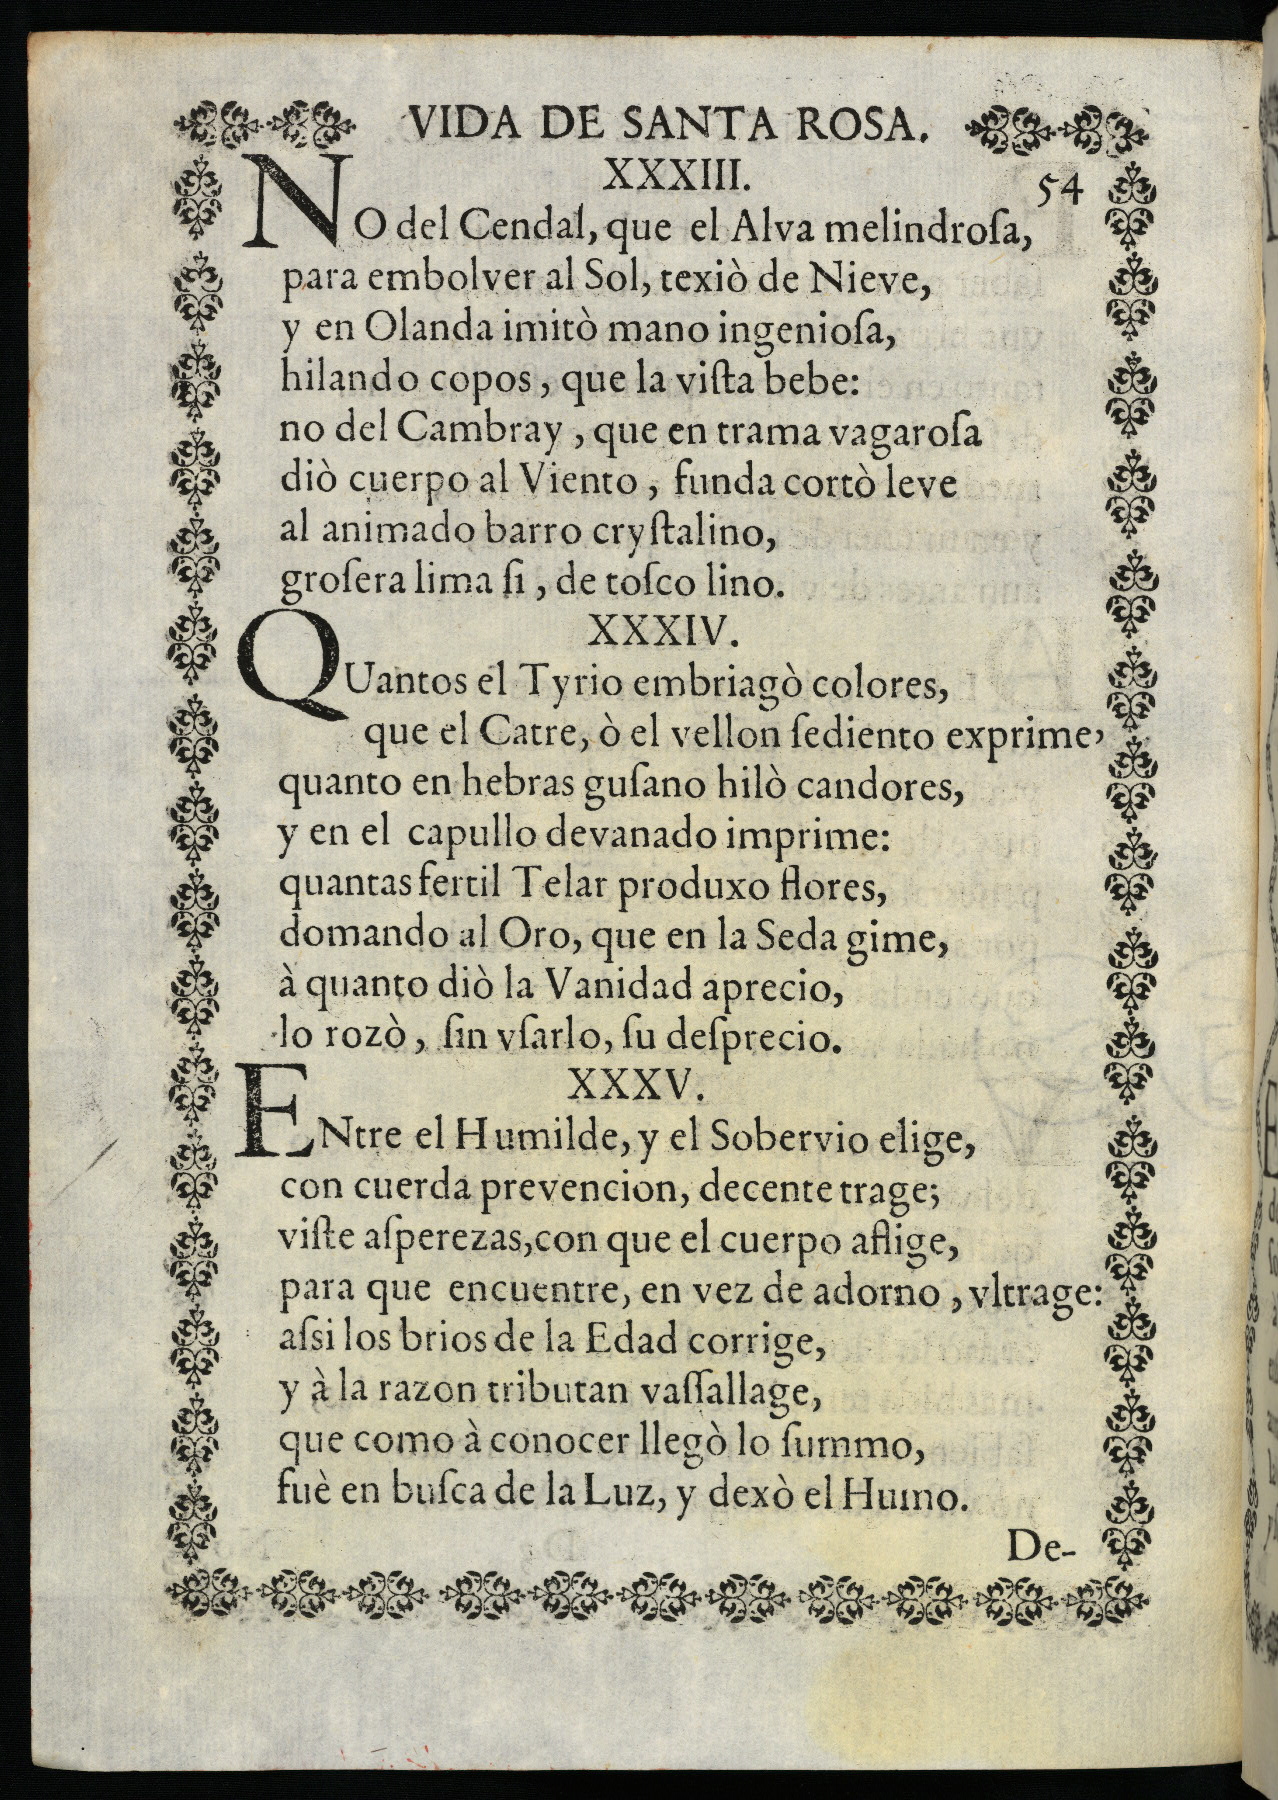 VIDA DE SANTA ROSA.
XXXIII.
54
NO del Cendal, que el Alva melindroſa,
para embolver al Sol, texiò de Nieve,
y en Olanda imitò mano ingenioſa,
hilando copos, que la viſta bebe:
no del Cambray, que en trama vagaroſa
diò cuerpo al Viento, funda cortò leve
al animado barro cryſtalino,
groſera lima ſi, de toſco lino.
XXXIV.
QUantos el Tyrio embriagò colores,
que el Catre, ò el vellon ſediento exprime,
quanto en hebras guſano hilò candores,
y en el capullo devanado imprime:
quantas fertil Telar produxo flores,
domando al Oro, que en la Seda gime,
à quanto diò la Vanidad aprecio,
lo rozò, ſin vſarlo, ſu deſprecio.
XXXV.
ENtre el Humilde, y el Sobervio elige,
con cuerda prevencion, decente trage;
viſte aſperezas, con que el cuerpo aflige,
para que encuentre, en vez de adorno, vltrage:
aſsi los brios de la Edad corrige,
y à la razon tributan vaſſallage,
que como à conocer llegò lo ſummo,
fuè en buſca de la Luz, y dexò el Humo.
De-